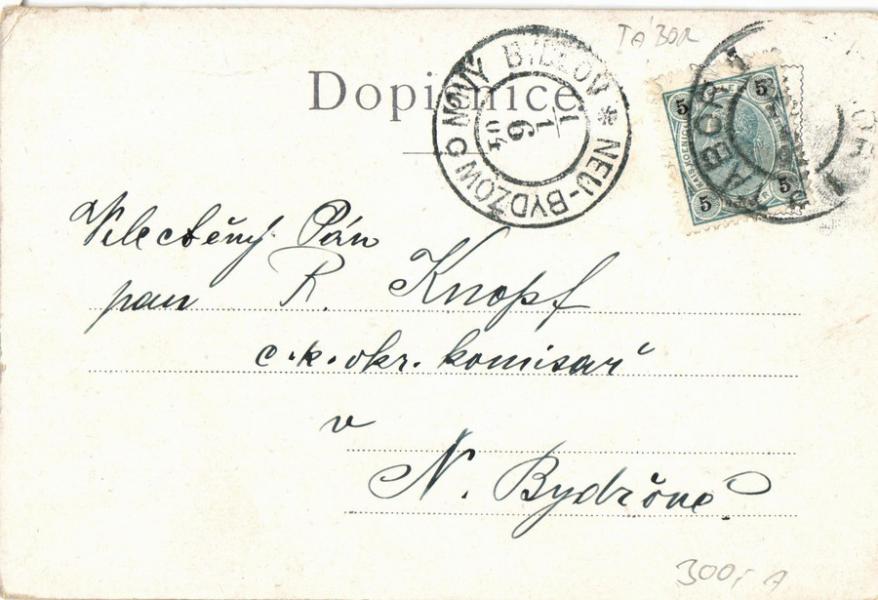 TÁBOR
Dopisnice
NOVÝ BIDŽOV * NEU-BYDŽOW
1
1
9
5
5
5
5
TÁBOR
Velectěný Pán
pan R. Knopf
c.k. okr. komisař
v
N. Bydžově
300,- A